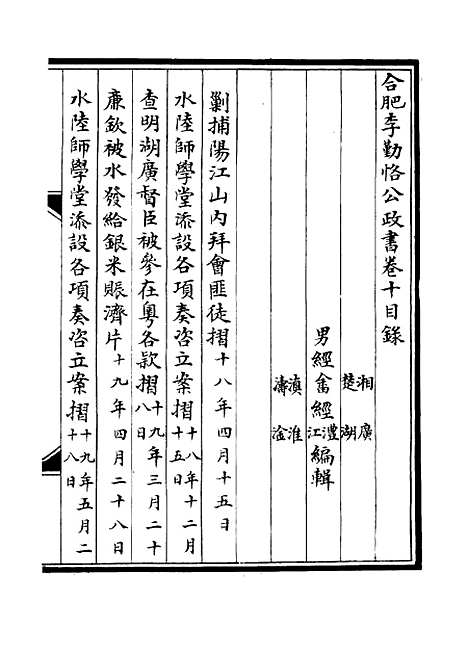 合肥李勤恪公政書卷十目錄
湘楚 廣湖
男經畬經澧江編輯
滇濤 淮淦
剿捕陽江山內拜會匪徒摺十八年四月十五日
水陸師學堂添設各項奏咨立案摺十八年十二月十五日
查明湖廣督臣被參在粵各款摺十九年三月二十八日
廉欽被水發給銀米賬濟片十九年四月二十八日
水陸師學堂添設各項奏咨立案摺十九年五月二十八日